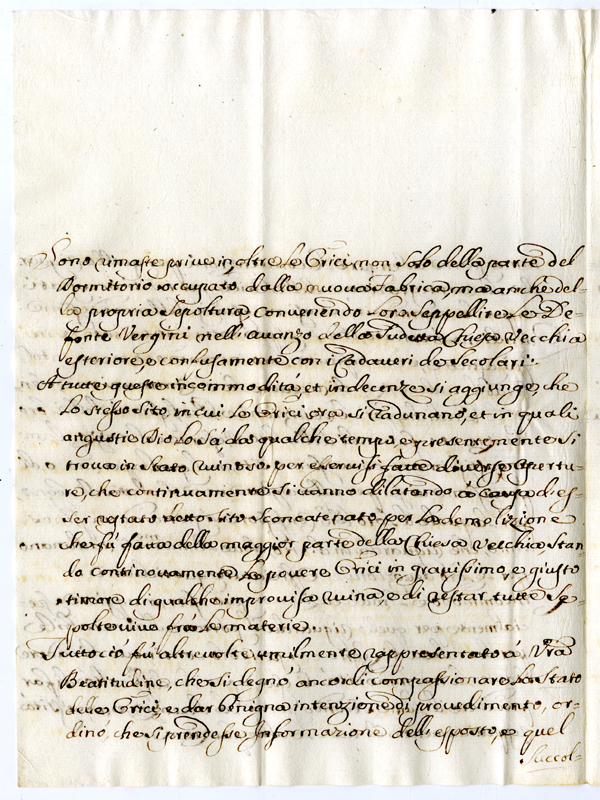 Sono rimaste prive inoltre le Orici non Solo della parte del
Dormitorio occupato dalla nuova fabrica, ma anche del-
la propria Sepoltura, convenendo loro Seppellire le De-
fonte Vergini nell'avanzo della Sudetta Chiesa Vecchia
esteriore, e confusamente con i Cadaveri de Secolari.
A tutte queste incommodità, et indecenze si aggiunge, che
lo stesso Sito, in cui le Orici ora si radunano, et in quali
angustie Dio lo sà, da qualche tempo, e presentemente Si
trova in Stato ruinoso, per essersi fatte diverse Apertu-
re, che continuamente si vanno dilatando à causa d'es-
ser restato detto Sito Sconcatenato per la demolizione
che fù fatta della maggior parte della Chiesa Vecchia Stan
do continovamente le povere Orici in gravissimo, e giusto
timore di qualche improvisa ruina, e di restar tutte Se-
polte vive frà le materie.
Tuttociò fù altre volte umilmente rappresentato à Vra
Beatitudine, che si degnò ancor di compassionare lo Stato
delle Orici, e dar benigna intenzione di provedimento, or-
dinò, che si prendesse Informazione dell'esposto, e quel
Succol=